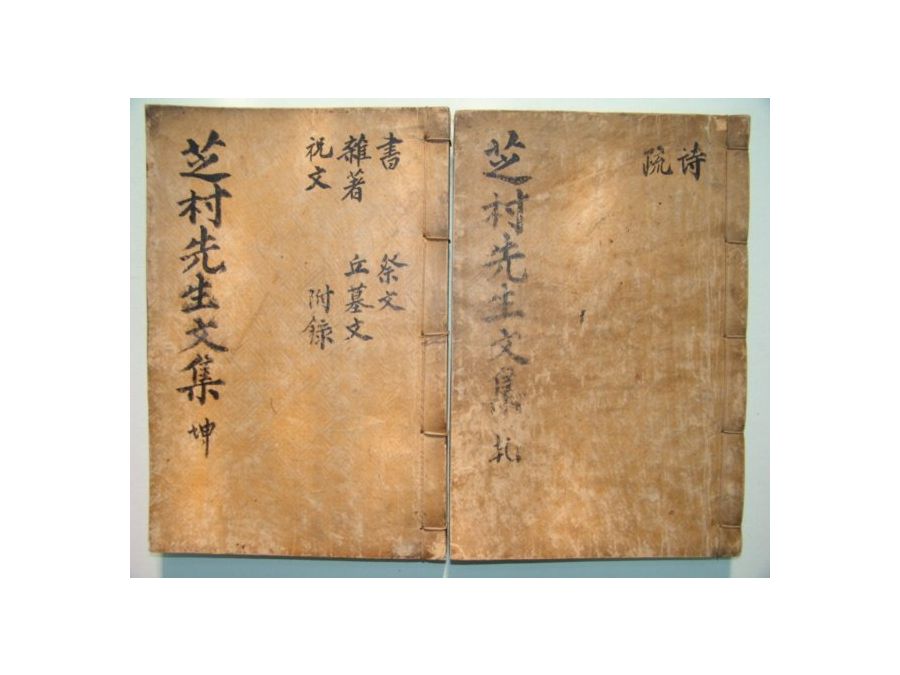 詩
疏
芝村先生文集 乾
書 祭文
雜著 丘墓文
祝文 附錄
芝村先生文集 坤